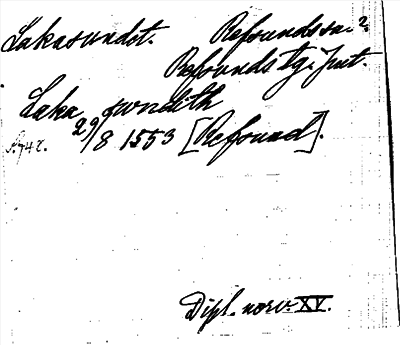 Lakasundet. Refsundsva?
Refsunds tg. Jmt.
Laka swndth
29/8 1553 [Refsund].
s. 742.
Dipl. norv. XV.